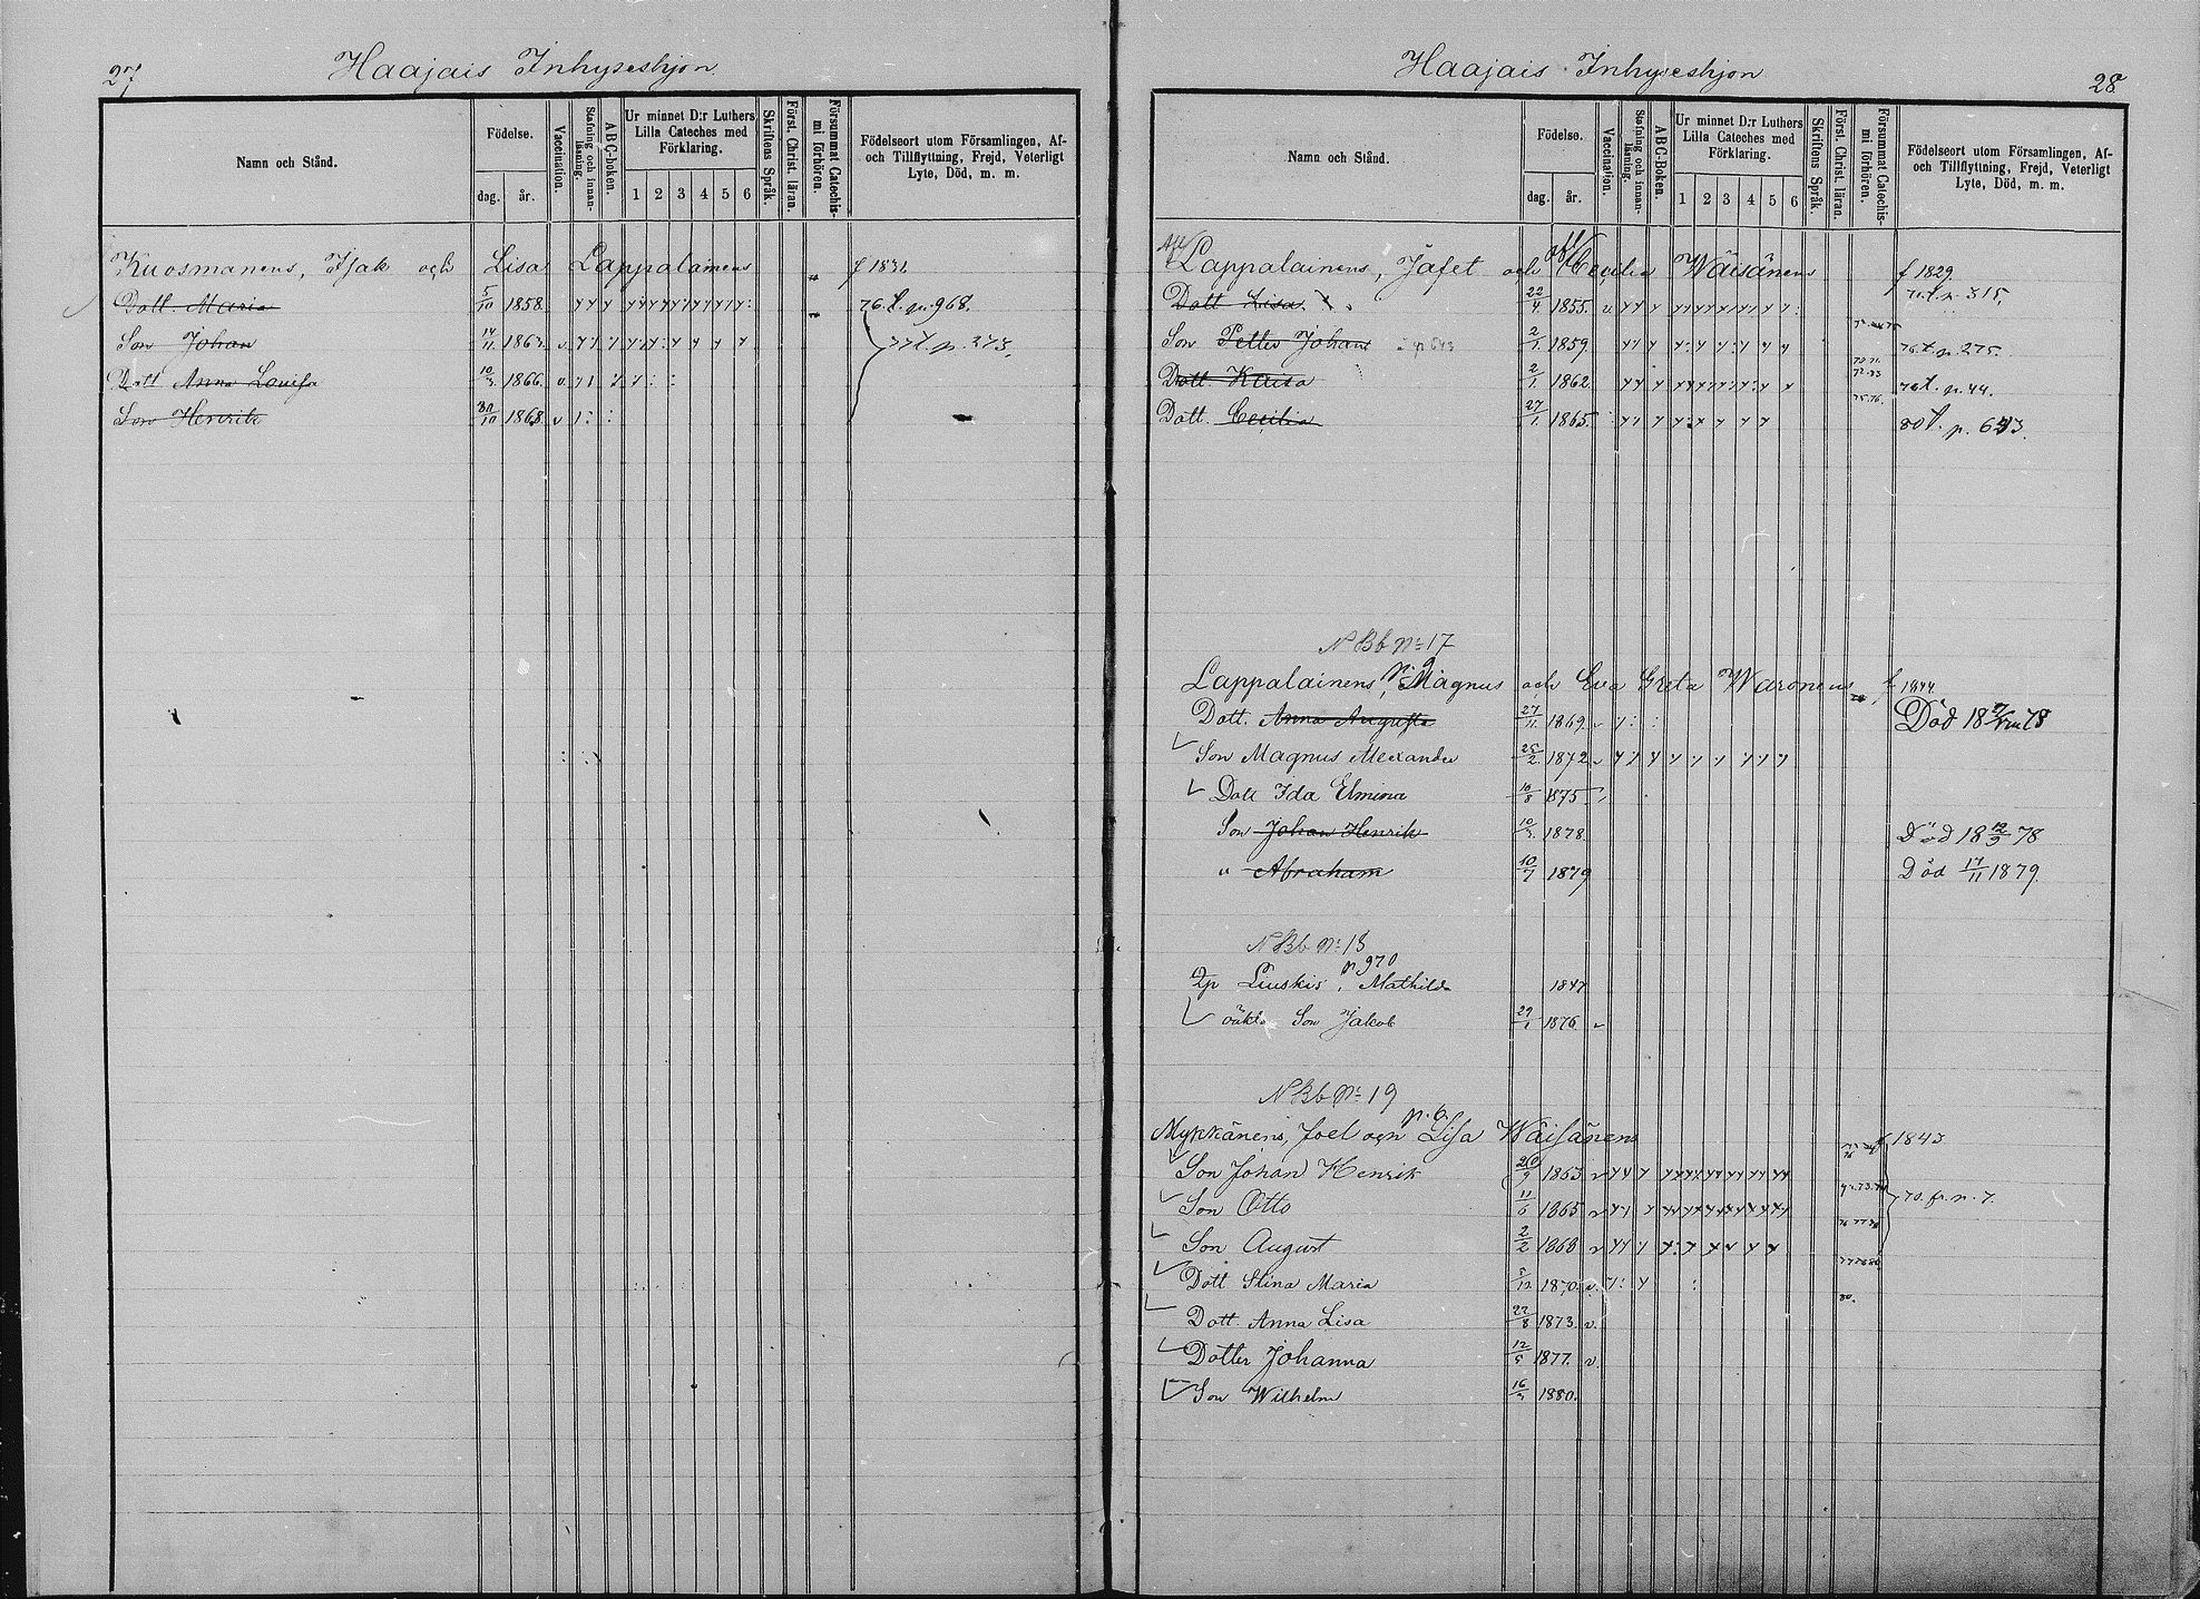 27
Haajais Inhyseshjon
Namn och Stånd.
Födelse.
dag.
år.
Vaccination.
Stafning och innanläsning.
ABC-boken.
Ur minnet D:r Luthers Lilla Cateches med Förklaring.
1 2 3 4 5 6
Skriftens Språk.
Först. Christ. läran.
Försummat Catechismi förhören.
Födelseort utom Församlingen, Af- och Tillflyttning, Frejd, Veterligt Lyte, Död, m. m.
Kuosmanens, Isak och Lisa Lappalainens f 1831
Dott. Maria 5/10 1858. 76. t. p. 968.
Son Johan 14/11 1863. 77 t. p. 373.
Dott Anna Lovisa 10/3 1866. v.
Son Henrik 30/10 1868. v
Haajais Inhyseshjon
28
Namn och Stånd.
Födelse.
dag.
år.
Vaccination.
Stafning och innanläsning.
ABC-Boken.
Ur minnet D:r Luthers Lilla Cateches med Förklaring.
1 2 3 4 5 6
Skriftens Språk.
Först. Christ. läran.
Försummat Catechismi förhören.
Födelseort utom Församlingen, Af- och Tillflyttning, Frejd, Veterligt Lyte, Död, m. m.
Lappalainens, Jafet och Cecilia Wäisänens f 1829
Dott Lisa 22/4 1855. p. 315.
Son Petter Johan 2/1 1859. 76. t. p. 275.
Dott. Kaisa 2/1 1862. t. p. 44.
Dott. Cecilia 27/1 1865. 80 t. p. 643.
N Bb No 17
p. 9
Lappalainens, Magnus och Eva Greta Waronens f 1844
Dott. Anna Augusta 27/11 1869. Död 78
Son Magnus Alexander 25/2 1872.
Dott Ida Elmina 10/8 1875
Son Johan Henrik 10/3 1878. Död 18 12/9 78
" Abraham 10/7 1879 Död 17/11 1879.
N Bb No 18
p 970
Qp Liuskis, Mathilda 1847
oäkta Son Jakob 29/1 1876
N Bb No 19
p. 6.
Mykkänens, Joel och Lisa Wäisänens f 1843
Son Johan Henrik 20/9 1863
Son Otto 11/6 1865 70. fr. p. 7.
Son August 2/2 1868
Dott Stina Maria 5/12 1870. v.
Dott. Anna Lisa 22/8 1873. v.
Dotter Johanna 12/5 1877. v.
Son Wilhelm 16/3 1880.